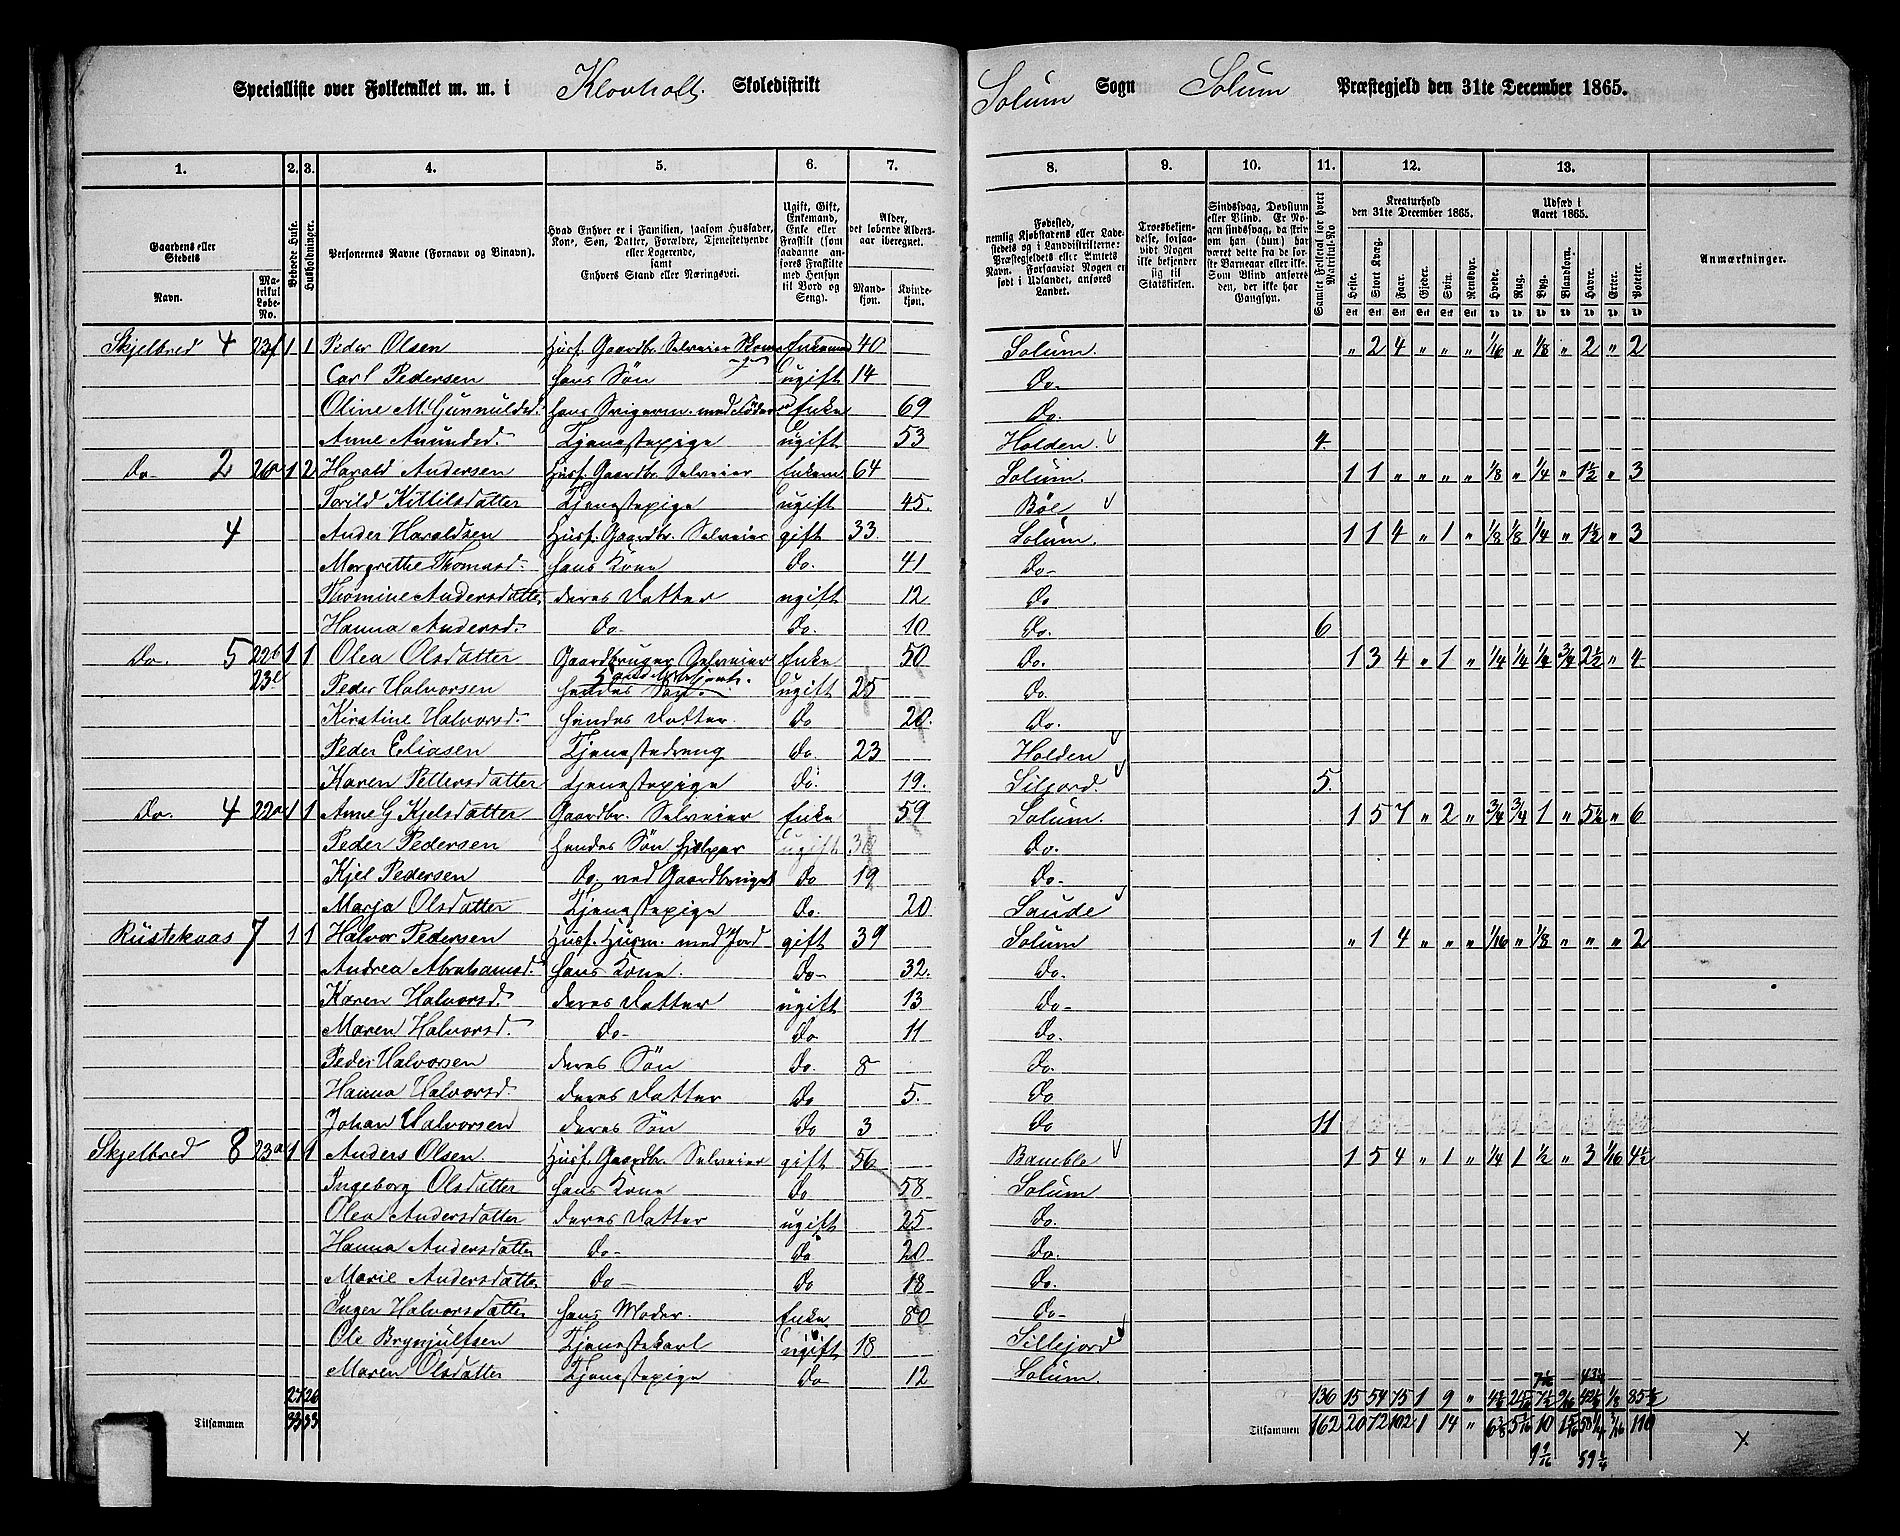 Specialliste over Folketallet m. m. i Klovholt. Skoledistrikt Solum Sogn Solum Præstegjeld den 31te December 1865.
1. 2. 3. 4. 5. 6. 7. 8. 9. 10. 11. 12. 13.
Gaardens eller Stedets Navn. Matrikul Løbe-No. Beboede Huse. Husholdninger. Personernes Navne (Fornavn og Tilnavn). Hvad Enhver er i Familien, saasom Husfader, Kone, Søn, Datter, Forældre, Tjenestetyende eller Logerende, samt Enhvers Stand eller Næringsvei. Ugift, Gift, Enkemand, Enke eller Fraskilt (som saadanne anføres Fraskilte med Hensyn til Bord og Seng). Alder, det løbende Aldersaar iberegnet. Mandkjøn. Kvindekjøn.
Fødested, nemlig Kjøbstadens eller Ladestedets og i Landdistrikterne: Præstegjeldets eller Amtets Navn. Forsaavidt Nogen er født i Udlandet, anføres Landet. Troesbekjendelse, forsaavidt Nogen ikke bekjender sig til Statskirken. Sindssvag, Døvstum eller Blind. Samlet Folketal for hvert Matrikul-No Kreaturhold den 31te December 1865. Udsæd i Aaret 1865. Anmærkninger.
Heste. Stort Kvæg. Faar. Gjeder. Svin. Rensdyr. Hvede. Rug. Byg. Blandkorn. Havre. Erter. Poteter.
Skjelbred 4 23f 1 1 Peder Olsen Husf. Gaardbr. Selveier Enkemand 40 Solum. " 2 4 " " " 1/16 " 1/8 " 2 " 2
Carl Pedersen hans Søn ugift 14 Do.
Oline M. Gunnuldsd. hans Svigerm. Enke 69 Do.
Anne Amundsd. Tjenestepige ugift 53 Holden. 4.
Do 2 26a 1 2 Harald Andersen Husf. Gaardbr. Selveier Enkem 64 Solum. 1 1 " " " " 1/8 " 1/4 " 1½ " 3
Torild Kittilsdatter Tjenestepige ugift 45. Böe
4 Ander Haraldsen Husf. Gaardbr. Selveier gift 33 Solum. 1 1 4 " 1 " 1/8 1/8 1/4 " 1½ " 3
Margrethe Thomasd. hans Kone Do. 41 Do
Thomine Andersdatter deres Datter ugift 12 Do
Hanna Andersd. Do Do. 10 Do. 6
Do. 5 22b 1 1 Olea Olsdatter Gaardbruger Selveier Enke 50 Do. 1 3 4 " 1 " 1/4 1/4 3/4 2½ " 4
23e Peder Halvorsen hendes Søn ugift 25 Do.
Kirstine Halvorsd. hendes Datter. Do 20. Do.
Peder Eliasen Tjenestedreng Do. 23 Holden
Karen Pettersdatter Tjenestepige Do. 19. Siljord. 5.
Do. 4 22a 1 1 Anne G Kjelsdatter Gaardbr. Selveier Enke 59 Solum. 1 5 7 " 2 " 3/4 3/4 1 " " 6
Peder Pedersen hendes Søn hjelper ugift Do.
Kjel Pedersen Do. ved Gaardbruget Do 19 Do
Marja Olsdatter Tjenestepige Do. 20 Saude
Rustekaas 7 1 1 Halvor Pedersen Husf. Husm. med Jord gift 39 Solum " 1 4 " " " 1/16 " 1/8 " " " 2
Andrea Abrahamsd. hans Kone. Do 32. Do.
Karen Halvorsd. deres Datter ugift 13 Do
Maren Halvorsd. Do Do 11 Do.
Peder Halvorsen deres Søn Do. 8 Do.
Hanna Halvorsd. deres Datter Do 5. Do
Johan Halvorsen deres Søn Do 3 Do 11
Skjelbred 8 23a 1 1 Anders Olsen. Husf. Gaardbr. Selveier gift 56 Bamble 1 5 4 " 1 " 1/4 1 ½ " 3 1/16 4½
Ingeborg Olsdatter hans Kone Do 58 Solum
Olea Andersdatter deres Datter ugift 25 Do.
Hanna Andersdatter Do Do 20 Do.
Marie Andersdatter Do Do 18 Do.
Inger Halvorsdatter hans Moder. Enke 80 Do
Ole Brynjulfsen Tjenestekarl ugift 18 Sillejord
Maren Olsdatter Tjenestepige Do 12 Solum.
27 26 136 15 54 75 1 9 "
Tilsammen 33 33 Tilsammen 162 20 72 102 1 14 " 10 110